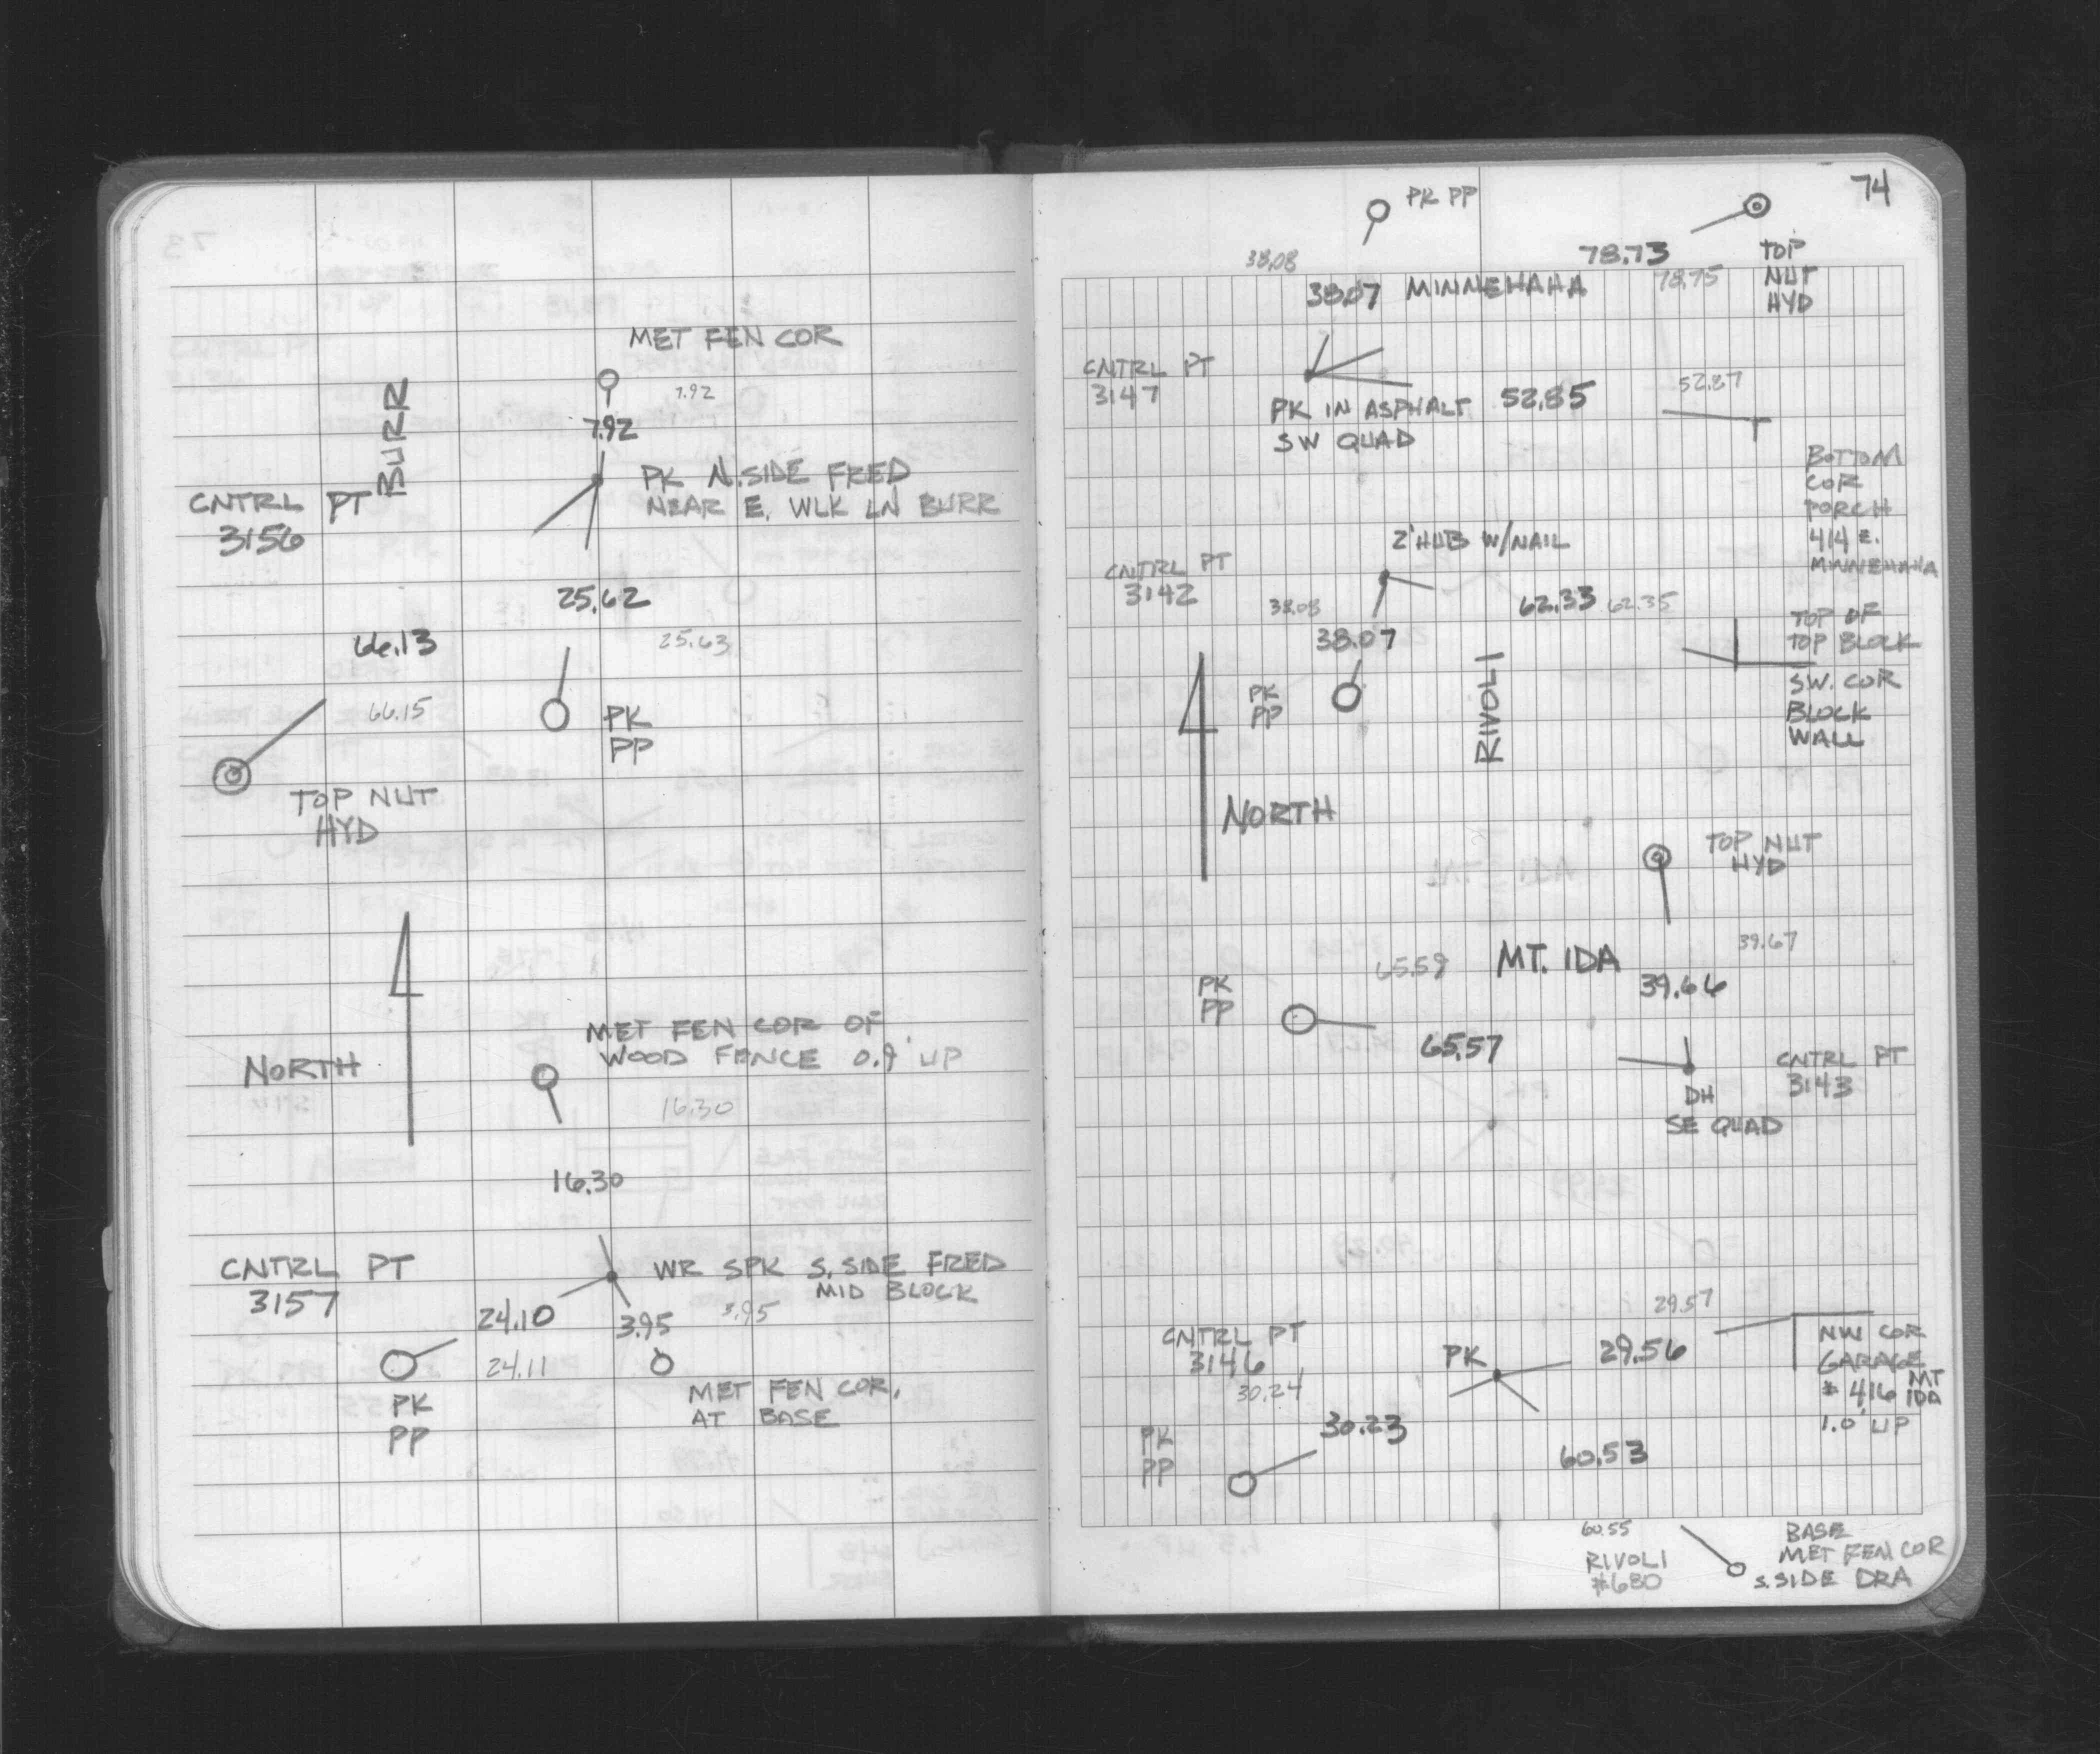 MET FEN COR
7.92
7.92
BURR
PK N. SIDE FRED
NEAR E. WLK LN BURR
CNTRL PT
3156
25.62
25.63
66.13
66.15
PK
PP
TOP NUT
HYD
NORTH
MET FEN COR OF
WOOD FENCE 0.9' UP
16.30
16.30
CNTRL PT
3157
WR SPK S. SIDE FRED
MID BLOCK
24.10
3.95
3.95
24.11
PK
PP
MET FEN COR,
AT BASE
74
PK PP
38.08
38.07
MINNEHAHA
78.73
78.75
TOP
NUT
HYD
CNTRL PT
3147
PK IN ASPHALT
SW QUAD
52.85
52.87
BOTTOM
COR
PORCH
414 E.
MINNEHAHA
2" HUB W/NAIL
CNTRL PT
3142
38.08
38.07
62.33
62.35
TOP OF
TOP BLOCK
SW. COR
BLOCK
WALL
PK
PP
RIVOLI
NORTH
TOP NUT
HYD
39.67
39.66
MT. IDA
65.59
65.57
PK
PP
CNTRL PT
3143
DH
SE QUAD
29.57
29.56
CNTRL PT
3146
PK
30.24
30.23
NW COR
GARAGE
# 416 MT IDA
1.0' UP
PK
PP
60.53
60.55
RIVOLI
#680
BASE
MET FEN COR
S. SIDE DRA